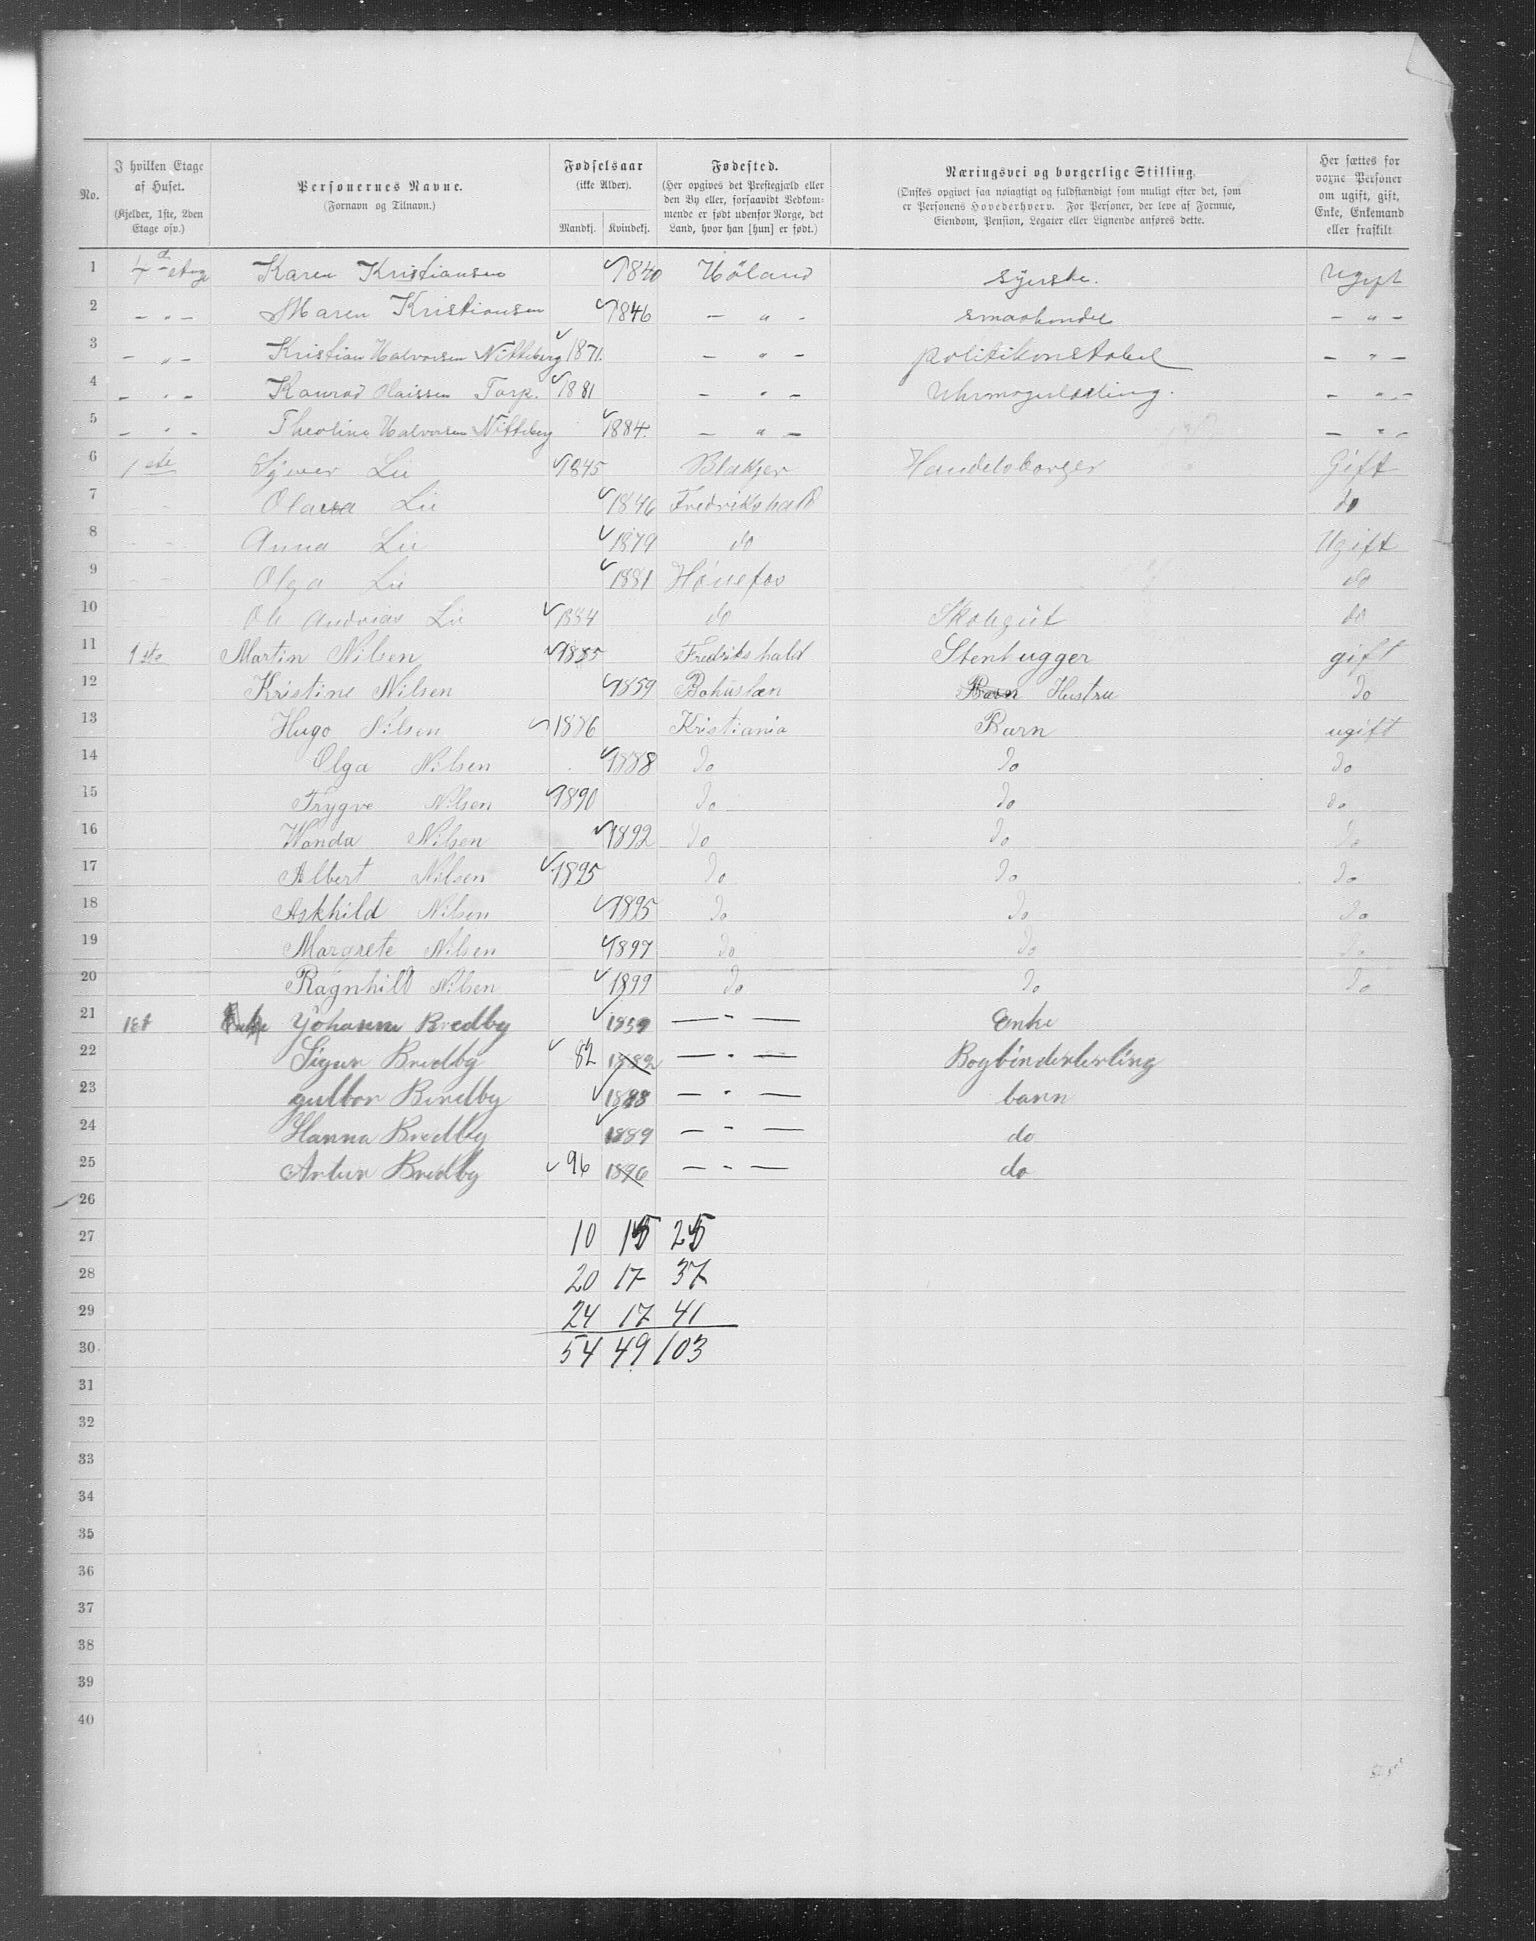 No.
I hvilken Etage af Huset. (Kjelder, 1ste, 2den Etage osv.)
Personernes Navne. (Fornavn og Tilnavn.)
Fødselsaar (ikke Alder).
Mandkj. Kvindekj.
Fødested. (Her opgives det Prestegjæld eller den By eller, forsaavidt Vedkommende er født udenfor Norge, det Land, hvor han [hun] er født.)
Næringsvei og borgerlige Stilling. (Ønskes opgivet saa nøiagtigt og fuldstændigt som muligt efter det, som er Personens Hovederhverv. For Personer, der leve af Formue, Eiendom, Pension, Legater eller Lignende anføres dette.
Her sættes for voxne Personer om ugift, gift, Enke, Enkemand eller fraskilt
1 4d etage Karen Kristiansen 1840 Höland syerske. ugift
2 - " - Maren Kristiansen 1846 - " - smaahandel - " -
3 - " - Kristian Halvorsen Nitteberg 1871. - " - politikonstabel - " -
4 - " - Konrad Olaissen Torp. 1881 - " - Uhrmagerlærling. - " -
5 - " - Theoline Halvorsen Nitteberg 1884. - " - - " -
6 1ste Syver Lie 1845 Blakjer Handelsborger Gift
7 Olava Lie 1846 Fredrikshald do
8 Anna Lie 1879 do Ugift
9 Olga Lie 1881 Hönefos do
10 Ole Andreas Lie 1884 do Skohgut do
11 1ste Martin Nilsen 1855 Fredrikshald Stenhugger gift
12 Kristine Nilsen 1859 Bohuslæn Barn Hustru do
13 Hugo Nilsen 1886 Kristiania Barn ugift
14 Olga Nilsen 1888 do do do
15 Trygve Nilsen 1890 do do do
16 Wanda Nilsen 1892 do do do
17 Albert Nilsen 1895 do do do
18 Askhild Nilsen 1895 do do do
19 Margrete Nilsen 1897 do do do
20 Ragnhild Nilsen 1899 do do do
21 1et Enke Johanne Bredby 1859 — " — Enke
22 Sigur Bredby 82 1882 — " — Bogbinderlerling
23 gulbor Bredby 1888 — " — barn
24 Hanna Bredby 1889 — " — do
25 Artur Bredby 96 1896 — " — do
26
27 10 15 25
28 20 17 37
29 24 17 41
30 54 49 103
31
32
33
34
35
36
37
38
39
40